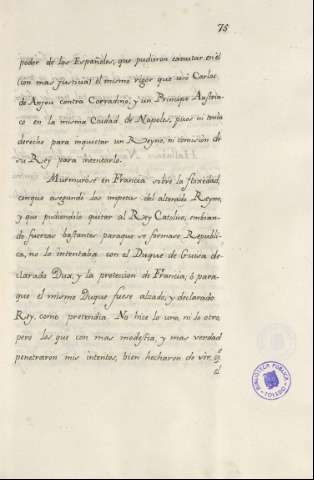 75
poder de los Españoles, que pudieron executar en él
con mas justicia el mismo rigor que usó Carlos
de Anjou contra Corradino, y un Principe Austria-
co en la misma Ciudad de Napoles, pues ni tenia
derecho para inquietar un Reyno, ni comisión de
su Rey para intentarlo.
Murmuróse en Francia sobre la floxedad,
conque asegundé los impetus del alterado Reyno,
y que pudiendole quitar al Rey Catolico, embian-
do fuerzas bastantes paraque se formase Republi-
ca, no lo intentaba con el Duque de Guisa de-
clarado Dux, y la proteccion de Francia, ò para-
que el mismo Duque fuese alzado, y declarado
Rey, como pretendia. No hice lo uno, ni lo otro,
pero los que con mas modestia, y mas verdad
penetraron mis intentos, bien hecharon de vér, q.e
el
BIBLIOTECA PÚBLICA
TOLEDO